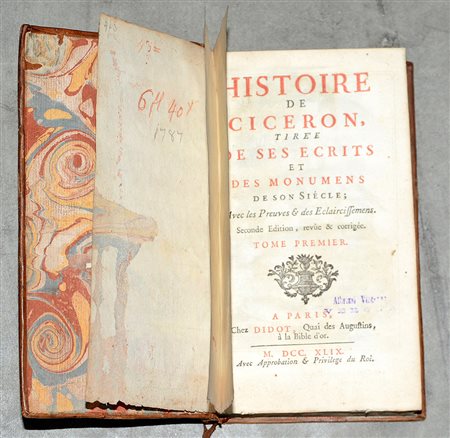 13=
6ff 40x
1787
HISTOIRE
DE
CICERON,
TIRÉE
DE SES ECRITS
ET
DES MONUMENS
DE SON SIÉCLE;
Avec les Preuves & des Eclaircissemens.
Seconde Edition, revûe & corrigée.
TOME PREMIER.
A PARIS,
Chez DIDOT, Quai des Augustins,
à la Bible d'or.
M. DCC. XLIX.
Avec Approbation & Privilege du Roi.